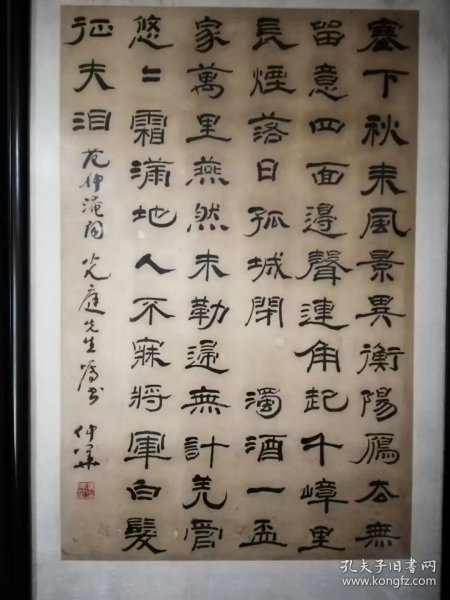 塞下秋来風景異衡陽鴈去無
留意四面邊聲連角起千嶂里
長煙落日孤城閉 濁酒一盃
家萬里燕然未勒歸無計羌管
悠〻霜滿地人不寐將軍白髮
征夫泪 范仲淹詞 光庭先生属书 仲華
孔夫子旧书网
www.kongfz.com